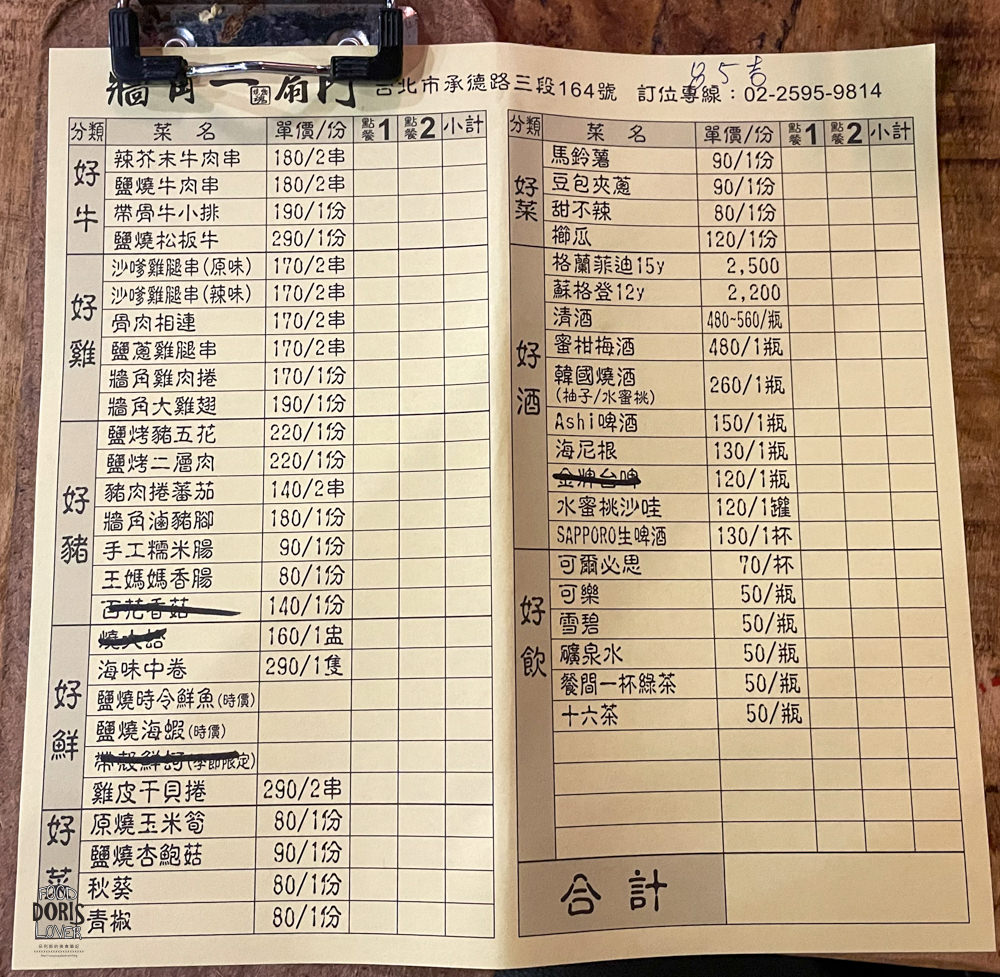 牆角一扇門 台北市承德路三段164號 訂位專線：02-2595-9814
分類 菜名 單價/份 點餐1 點餐2 小計
好牛
辣芥末牛肉串 180/2串
鹽燒牛肉串 180/2串
帶骨牛小排 190/1份
鹽燒松板牛 290/1份
好雞
沙嗲雞腿串(原味) 170/2串
沙嗲雞腿串(辣味) 170/2串
骨肉相連 170/2串
鹽蔥雞腿串 170/2串
牆角雞肉捲 170/1份
牆角大雞翅 190/1份
好豬
鹽烤豬五花 220/1份
鹽烤二層肉 220/1份
豬肉捲蕃茄 140/2串
牆角滷豬腳 180/1份
手工糯米腸 90/1份
王媽媽香腸 80/1份
百花香菇 140/1份
好鮮
燒大蛤 160/1盅
海味中卷 290/1隻
鹽燒時令鮮魚(時價)
鹽燒海蝦(時價)
帶殼鮮蚵(季節限定)
雞皮干貝捲 290/2串
好菜
原燒玉米筍 80/1份
鹽燒杏鮑菇 90/1份
秋葵 80/1份
青椒 80/1份
分類 菜名 單價/份 點餐1 點餐2 小計
好菜
馬鈴薯 90/1份
豆包夾蔥 90/1份
甜不辣 80/1份
櫛瓜 120/1份
好酒
格蘭菲迪15y 2,500
蘇格登12y 2,200
清酒 480~560/瓶
蜜柑梅酒 480/1瓶
韓國燒酒 260/1瓶
(柚子/水蜜桃)
Ashi啤酒 150/1瓶
海尼根 130/1瓶
金牌台啤 120/1瓶
水蜜桃沙哇 120/1罐
SAPPORO生啤酒 130/1杯
好飲
可爾必思 70/杯
可樂 50/瓶
雪碧 50/瓶
礦泉水 50/瓶
餐間一杯綠茶 50/瓶
十六茶 50/瓶
合計
FOOD
DORIS
LOVER